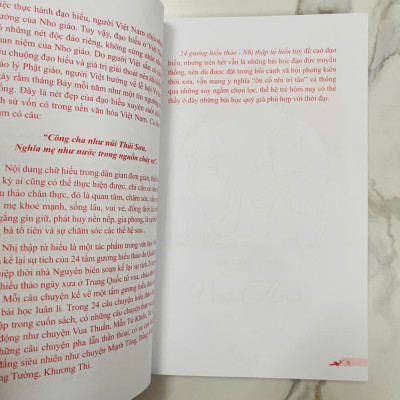 ộc thực hành đạo hiếu, người Việt Nam
của Nho giáo. Tuy vậy, đạo hiếu ở Việt Nam
những nét độc đáo riêng, không cứng nhắc
quan niệm của Nho giáo. Do người Việt
chuộng đạo hiếu và giá trị giải thoát nên
lý Phật giáo, người Việt hướng về lễ hội
rằm tháng Bảy mỗi năm như một
Đây là nét đẹp của đạo hiếu xuyên suốt
h sử vốn có trong nền văn hóa Việt Nam.
am có câu:
“Công cha như núi Thái Sơn,
Nghĩa mẹ như nước trong nguồn chảy ra”.
Nội dung chữ hiếu trong dân gian đơn giản,
kỳ ai cũng có thể thực hiện được, chỉ cần
thảo chân thực, đó là quan tâm, chăm sóc,
mẹ khoẻ mạnh, sống lâu, vui vẻ, đồng thời
gắng gìn giữ, phát huy nền nếp, gia phong,
bà tổ tiên và sự chăm sóc các thế hệ sau...
Nhị thập tứ hiếu là một tác phẩm trong văn học
kể lại sự tích của 24 tấm gương hiếu thảo do
thời nhà Nguyên biên soạn kể lại sự tích 24
hiếu thảo ngày xưa ở Trung Quốc từ vua,
Mỗi câu chuyện kể về một tấm gương hiếu thảo
bài học luân lí. Trong 24 câu chuyện hiếu thảo
tập trong cuốn sách, có những câu chuyện
như chuyện Vua Thuấn, Mẫn Tử Khiên,
những câu chuyện pha lẫn thần thoại, có sự
đấng siêu nhiên như chuyện Mạnh Tông, Đổng
g Tường, Khương Thi.
24 gương hiếu thảo - Nhị thập tứ hiếu tuy đề cao đạo
hiếu, nhưng trên hết vẫn là những bài học đạo đức truyền
thống, nên dù được đặt trong bối cảnh xã hội phong kiến
thời xưa, vẫn mang ý nghĩa “ôn cố nhi tri tân” và thông
qua những suy ngẫm chọn lọc, thế hệ trẻ hôm nay có thể
thấy ở đây những bài học quý giá phù hợp với thời đại.